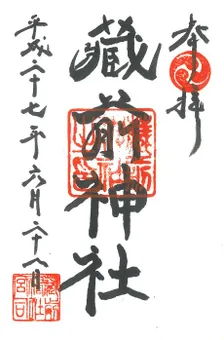 奉拝
藏前神社
平成二十七年六月二十八日